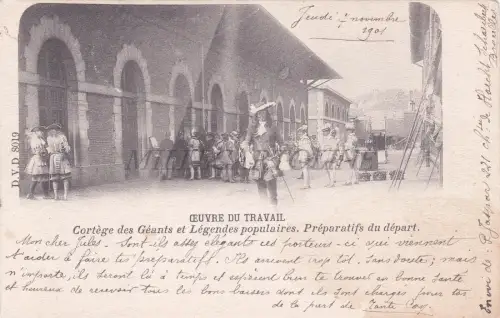 Jeudi 7 novembre
1901
D.V.D. 8019
ŒUVRE DU TRAVAIL
Cortège des Géants et Légendes populaires. Préparatifs du départ.
Mon cher Jules. Sont ils assez élégants ces porteurs-ci qui viennent
t'aider à faire tes préparatifs. Ils arrivent trop tôt sans doute; mais
n'importe, ils seront là à temps et espèrent bien te trouver en bonne santé
et heureux de recevoir tous les bons baisers dont ils sont chargés pour toi
de la part de Tante
Envoi de